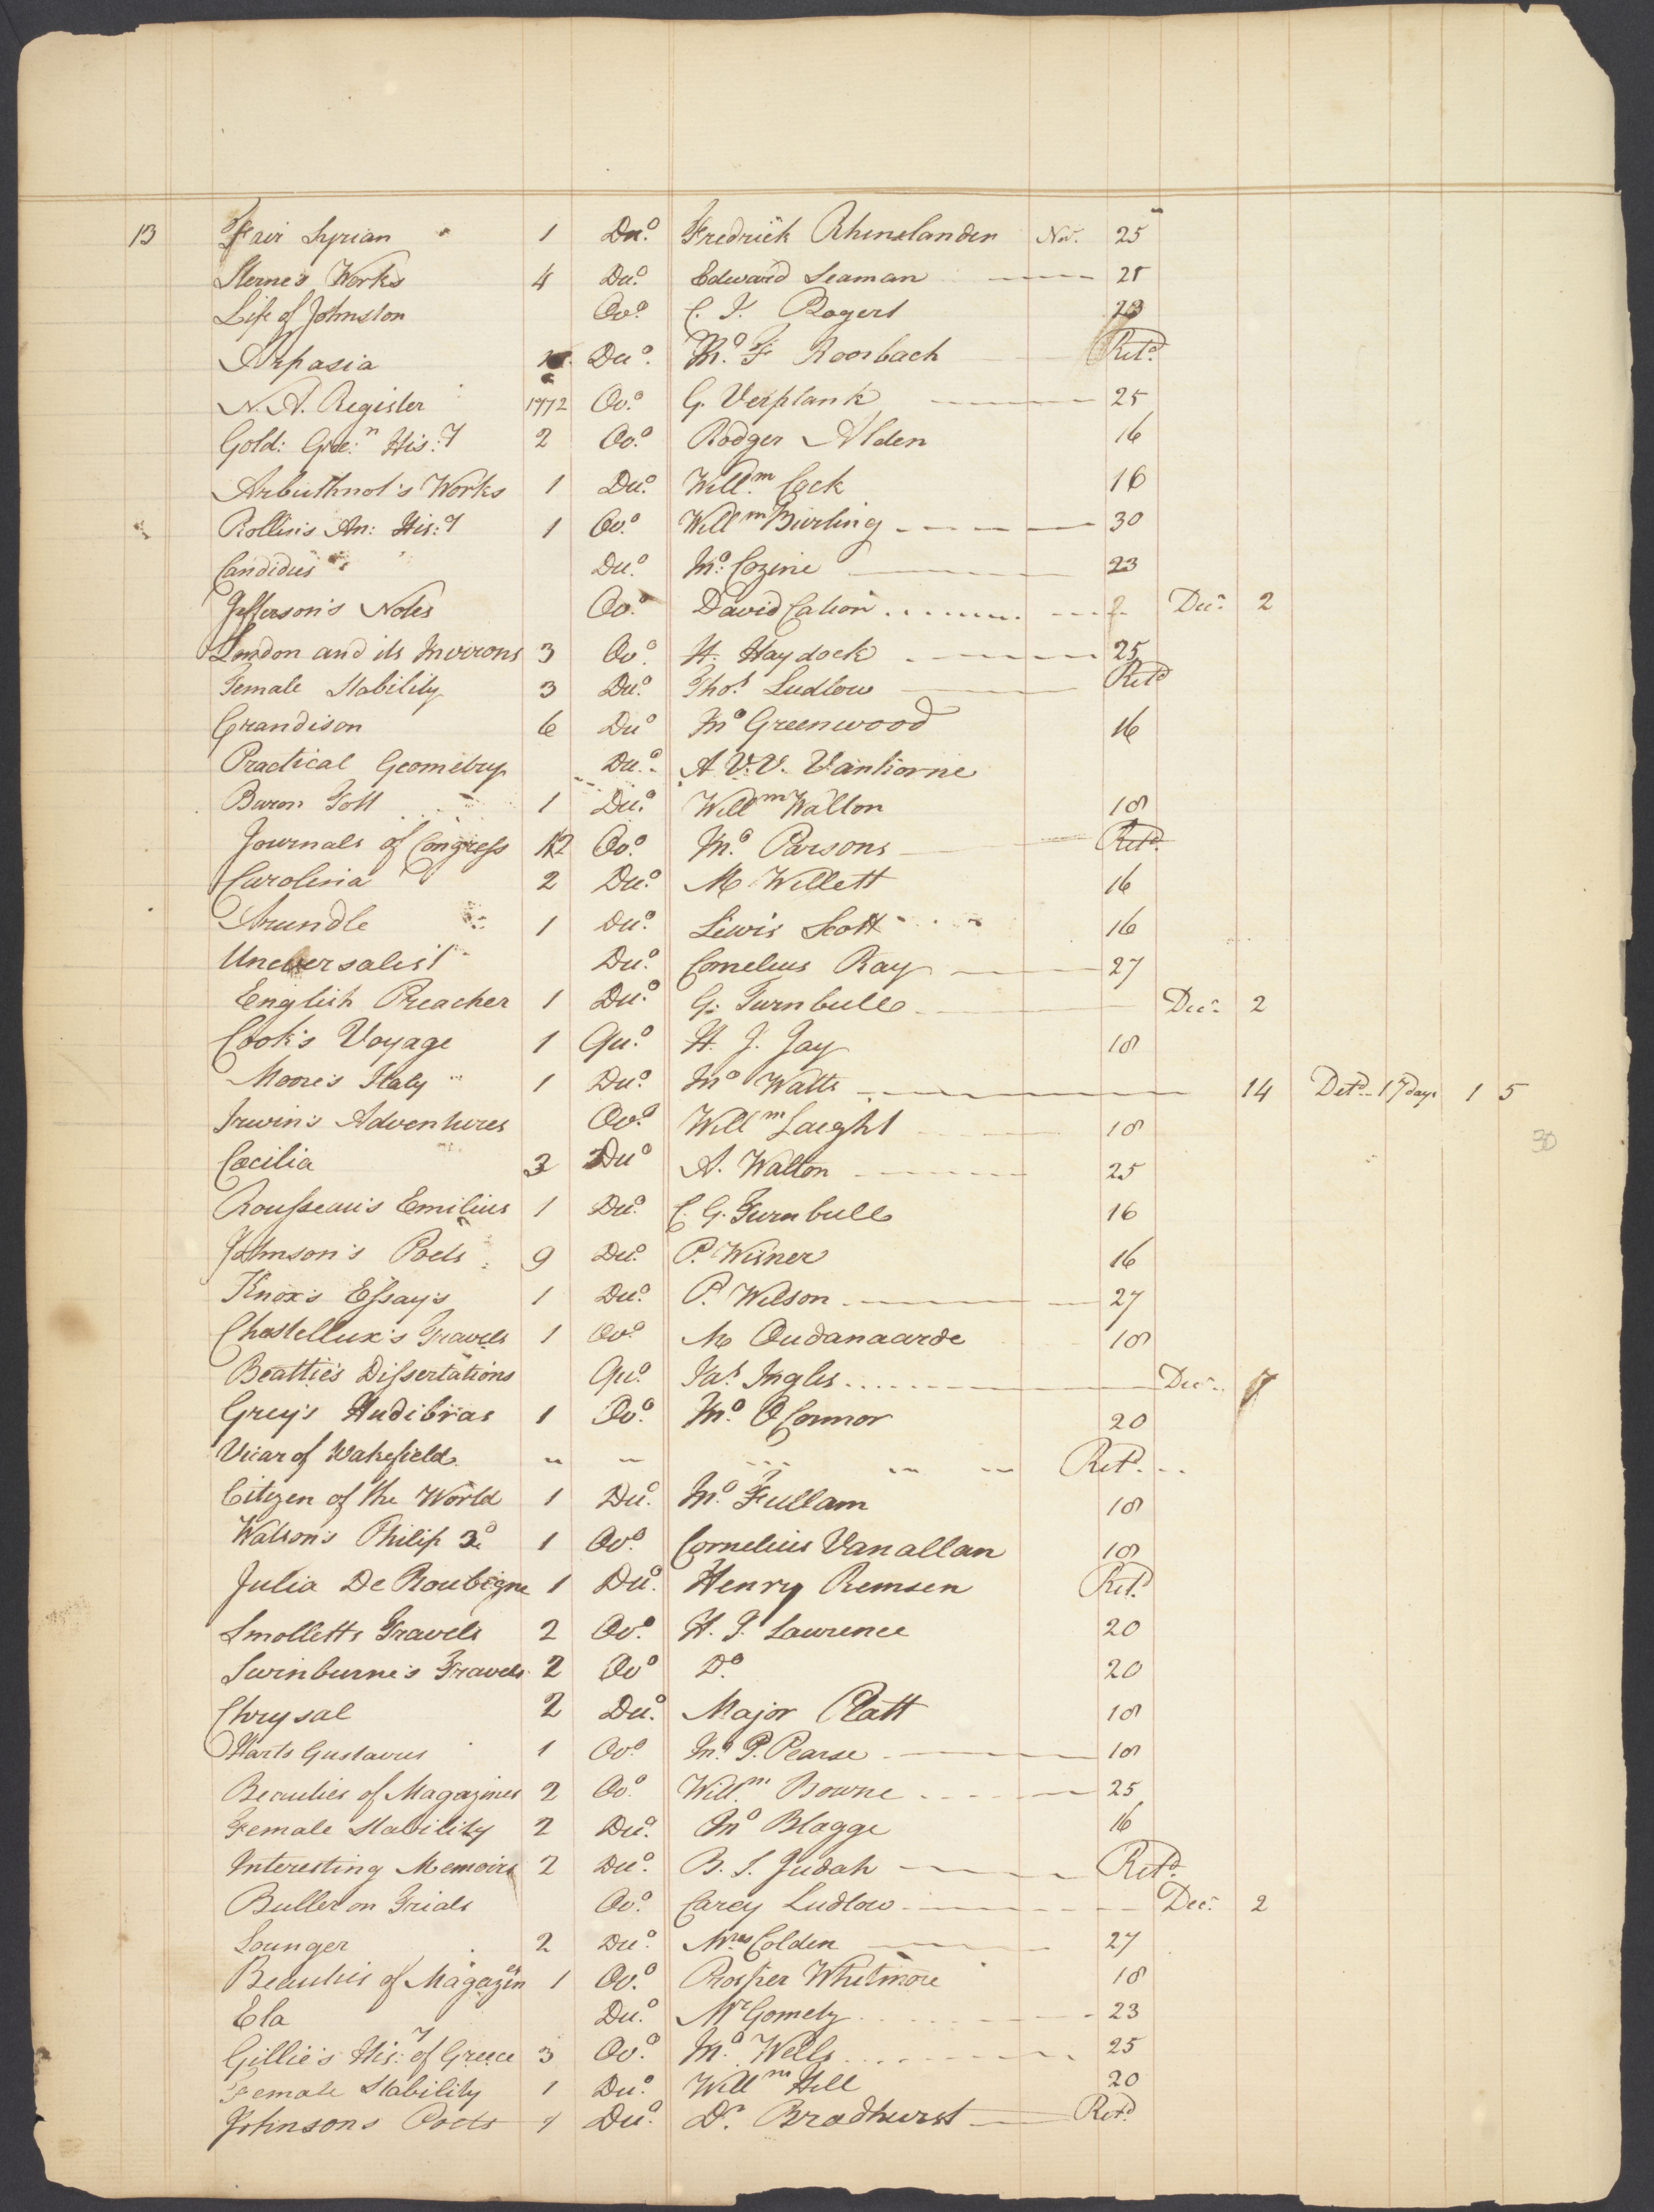 13 Fair Syrian 1 Duo. Fredrick Rhinelander Nov. 25
Sterne's Works 4 Duo. Edward Seaman 25
Life of Johnston Ovo. C. T. Rogers 23
Arpasia Duo. Jno. F Roorbach Retd.
N. A. Register 1772 Ovo. G. Verplank 25
Gold: Gre:n His:y 2 Ovo. Rodger Alden 16
Arbuthnot's Works 1 Duo. Willm. Cock 16
Rollin's An: His:y 1 Ovo. Willm Burling 30
Candidus Duo. Jno. Cozine 23
Jefferson's Notes Ovo. David Cation Decr. 2
London and its Invirons 3 Ovo. H. Haydock 25
Female Stability 3 Duo. Thos. Ludlow Retd
Grandison 6 Duo Jno Greenwood 16
Practical Geometry Duo. A V. V. Vanhorne
Baron Tott 1 Duo. Willm Walton 18
Journals of Congress 12 Ovo. Jno. Parsons Retd.
Carolina 2 Duo. M Willett 16
Arundle 1 Duo. Lewis Scott 16
Universalist Duo. Cornelius Ray 27
English Preacher 1 Duo. G. Turnbull Decr. 2
Cook's Voyage 1 Quo. H. J. Jay 18
Moore's Italy 1 Duo. Jno Watts 14 Detd. 17 days 1 5
Irwin's Adventures Ovo. Willm Laight 18
30
Cecilia 3 Duo A. Walton 25
Rousseau's Emilius 1 Duo. C. G. Turnbull 16
Johnson's Poets 9 Duo. P. Wisner 16
Knox's Essay's 1 Duo. P. Wilson 27
Chastellux's Travels 1 Ovo. M Oudanaarde 18
Beattie's Dissertations Quo. Jas. Ingles Decr. 7
Grey's Hudibras 1 Ovo. Jno. OConnor 20
Vicar of Wakefield Retd.
Citizen of the World 1 Duo. Jno. Fullam 18
Watson's Philip 3d 1 Ovo. Cornelius Vanallan 18
Julia De Roubigne 1 Duo. Henry Remsen Retd.
Smolletts Travels 2 Ovo. H. T. Lawrence 20
Swinburne's Travels 2 Ovo Do 20
Chrysal 2 Duo. Major Platt 18
Harts Gustavus 1 Ovo. Jno. P. Pearse 18
Beauties of Magazines 2 Ovo. Willm. Bowne 25
Female Stability 2 Duo. Jno Blagge 16
Interesting Memoirs 2 Duo. B. S. Judah Retd.
Buller on Trials Ovo. Carey Ludlow Decr. 2
Lounger 2 Duo. Mrs Colden 27
Beauties of Magazines 1 Ovo. Prosper Whitmore 18
Ela Duo. Mr Gometz 23
Gillie's His:y of Greece 3 Ovo. Jno. Wells 25
Female Stability 1 Duo. Willm Hill 20
Johnsons Poets Duo. Dr. Bradhurst Retd.